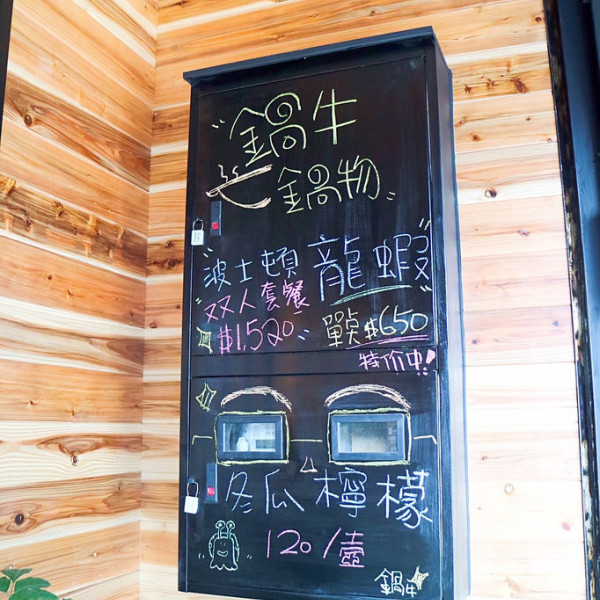 鍋牛
鍋物
波士頓 龍蝦
双人套餐
$1,520 單點$650
特价中!
冬瓜檸檬
120/壺
鍋牛